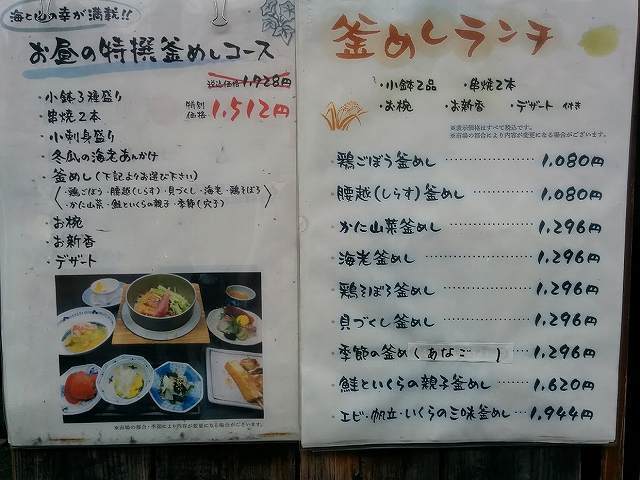 海と山の幸が満載!!
お昼の特撰釜めしコース
税込価格 1,728円
特別価格 1,512円
・小鉢3種盛り
・串焼2本
・小刺身盛り
・冬瓜の海老あんかけ
・釜めし(下記よりお選び下さい)
〈・鶏ごぼう・腰越(しらす)・貝づくし・海老・鶏そぼろ
・かに山菜・鮭といくらの親子・季節(穴子)〉
・お椀
・お新香
・デザート
※市場の都合・季節により内容が変更になる場合がございます。
釜めしランチ
・小鉢2品 ・串焼2本
・お椀 ・お新香 ・デザート 付き
※表示価格はすべて税込です。
※市場の都合により内容が変更になる場合がございます。
・鶏ごぼう釜めし……………1,080円
・腰越(しらす)釜めし…………1,080円
・かに山菜釜めし……………1,296円
・海老釜めし………………1,296円
・鶏そぼろ釜めし……………1,296円
・貝づくし釜めし……………1,296円
・季節の釜め(あなご)……1,296円
・鮭といくらの親子釜めし……1,620円
・エビ・帆立・いくらの三味釜めし…1,944円